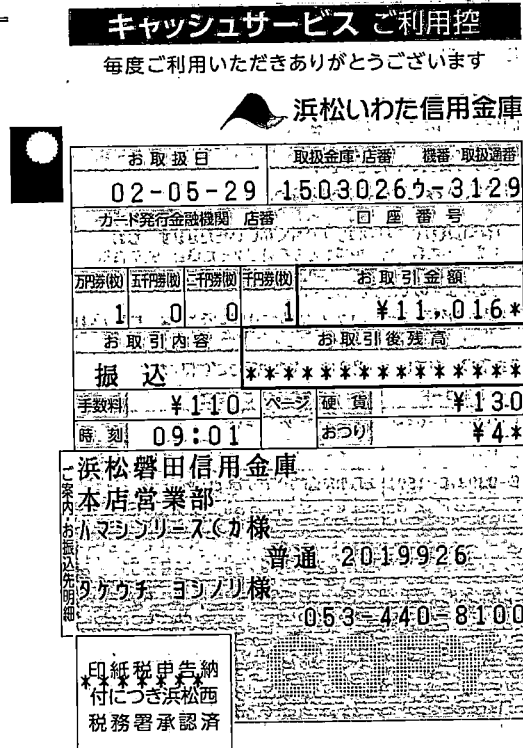 キャッシュサービス ご利用控
毎度ご利用いただきありがとうございます
浜松いわた信用金庫
お取扱日 取扱金庫・店番 機番 取扱通番
02-05-29 1503026ウ-3129
カード発行金融機関 店番 口座番号
万円券(枚) 五千円券(枚) 二千円券(枚) 千円券(枚) お取引金額
1 0 0 1 ¥11,016*
お取引内容 お取引後残高
振込 ***************
手数料 ¥110 ページ 硬貨 ¥130
時刻 09:01 おつり ¥4*
ご案内・お振込先明細
浜松磐田信用金庫
本店営業部
ハマシンリース(カ様
普通 2019926
タケウチ ヨシノリ様
053-440-8100
COPY
印紙税申告納
*******
付につき浜松西
税務署承認済